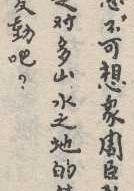 不可想象周臣
之对多山水之地的
动吧？